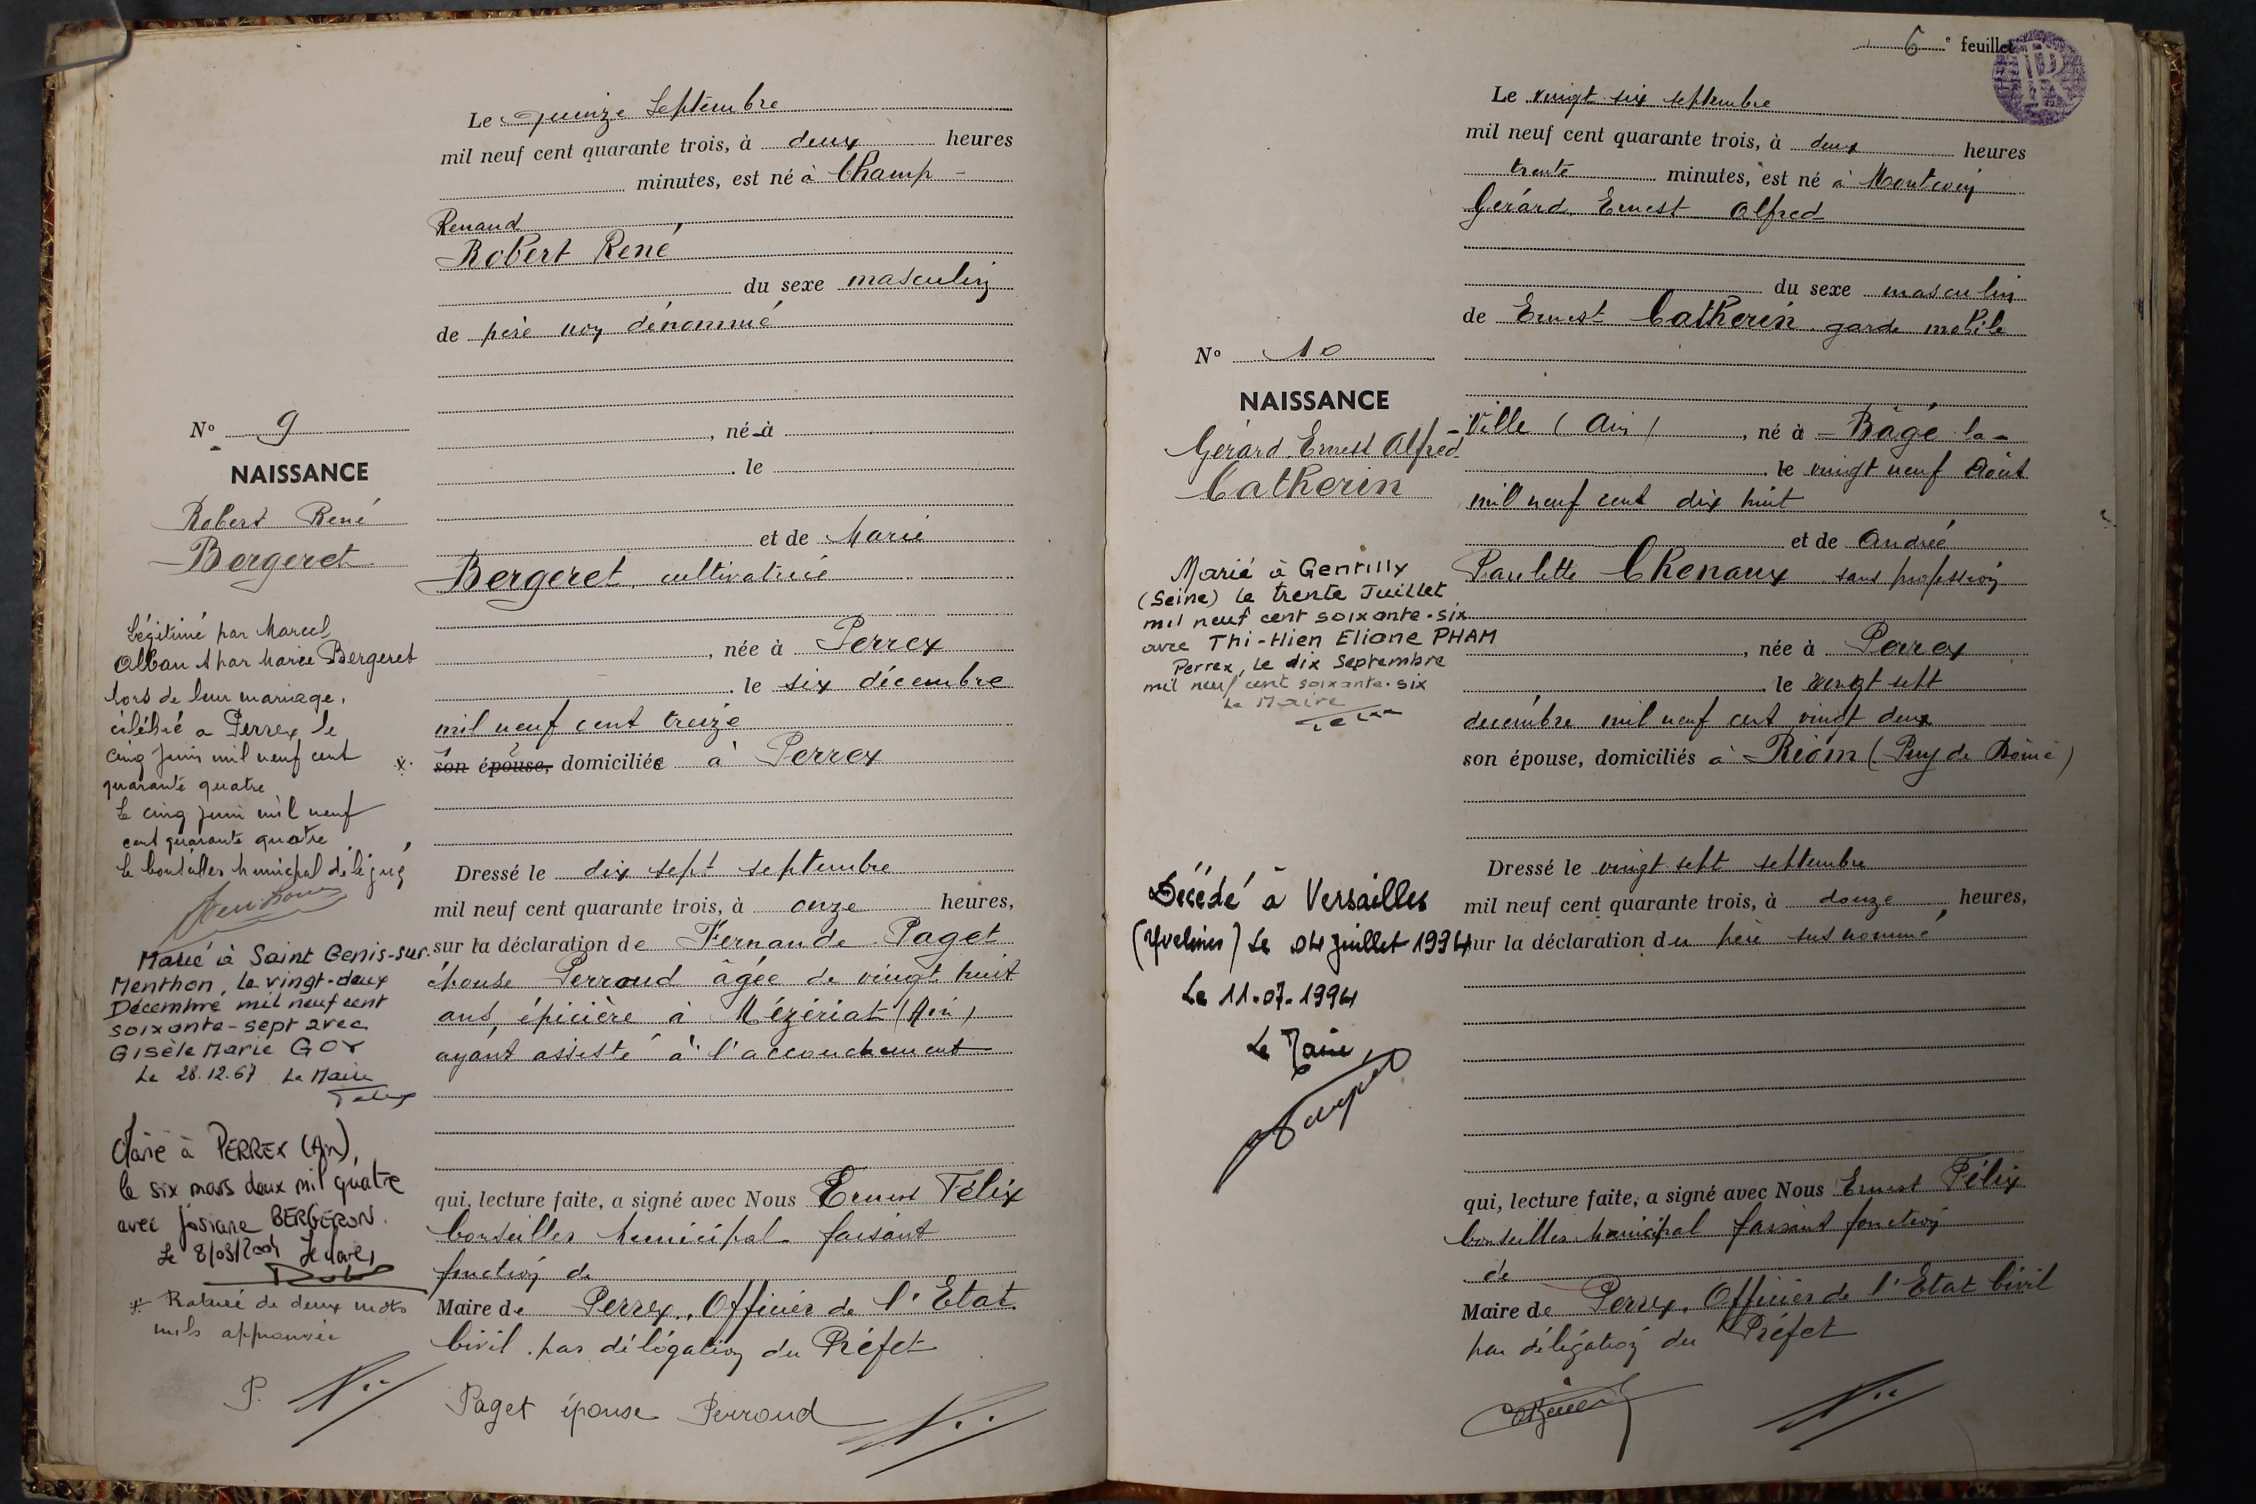 Le quinze Septembre
mil neuf cent quarante trois, à deux heures
minutes, est né à Champ-
Renaud
Robert René
du sexe masculin
de père non dénommé
N° 9
NAISSANCE
Robert René
Bergeret
, né à
. le
et de Marie
Bergeret, cultivatrice
, née à Perrex
. le six décembre
mil neuf cent treize
son épouse, domiciliée à Perrex
Dressé le dix sept septembre
mil neuf cent quarante trois, à onze heures,
sur la déclaration de Fernande Paget
épouse Perroud âgée de vingt huit
ans, épicière à Mézériat (Ain)
ayant assisté à l'accouchement
qui, lecture faite, a signé avec Nous Ernest Félix
Conseiller Municipal faisant
fonction de
Maire de Perrex, Officier de l'Etat
Civil par délégation du Préfet
Paget épouse Perroud
Légitimé par Marcel
Alban et par Marie Bergeret
lors de leur mariage,
célébré à Perrex le
cinq juin mil neuf cent
quarante quatre
Le cinq juin mil neuf
cent quarante quatre
Le Conseiller Municipal délégué
Marié à Saint Genis-sur-
Menthon, le vingt-deux
Décembre mil neuf cent
soixante-sept avec
Gisèle Marie GOY
Le 28.12.67 Le Maire
Marié à PERREX (Ain),
le six mars deux mil quatre
avec Josiane BERGERON.
Le 8/03/2004 Le Maire,
* Raturé de deux mots
nuls approuvée
P.
6e feuillet
Le vingt six septembre
mil neuf cent quarante trois, à deux heures
trente minutes, est né à Montcoin
Gérard Ernest Alfred
du sexe masculin
de Ernest Catherin garde mobile
N° 10
NAISSANCE
Gérard Ernest Alfred
Catherin
-Ville (Ain), né à Bâgé-la-
. le vingt neuf Août
mil neuf cent dix huit
et de Andrée
Paulette Chenaux sans profession
, née à Perrex
. le vingt sept
décembre mil neuf cent vingt deux
son épouse, domiciliés à Riom (Puy de Dôme)
Dressé le vingt sept septembre
mil neuf cent quarante trois, à douze heures,
sur la déclaration du père susnommé
qui, lecture faite, a signé avec Nous Ernest Félix
Conseiller Municipal faisant fonction
de
Maire de Perrex, Officier de l'Etat Civil
par délégation du Préfet
Marié à Gentilly
(Seine) le trente Juillet
mil neuf cent soixante-six
avec Thi-Hien Eliane PHAM
Perrex, le dix Septembre
mil neuf cent soixante-six
Le Maire
Décédé à Versailles
(Yvelines) le 04 juillet 1994
Le 11.07.1994
Le Maire